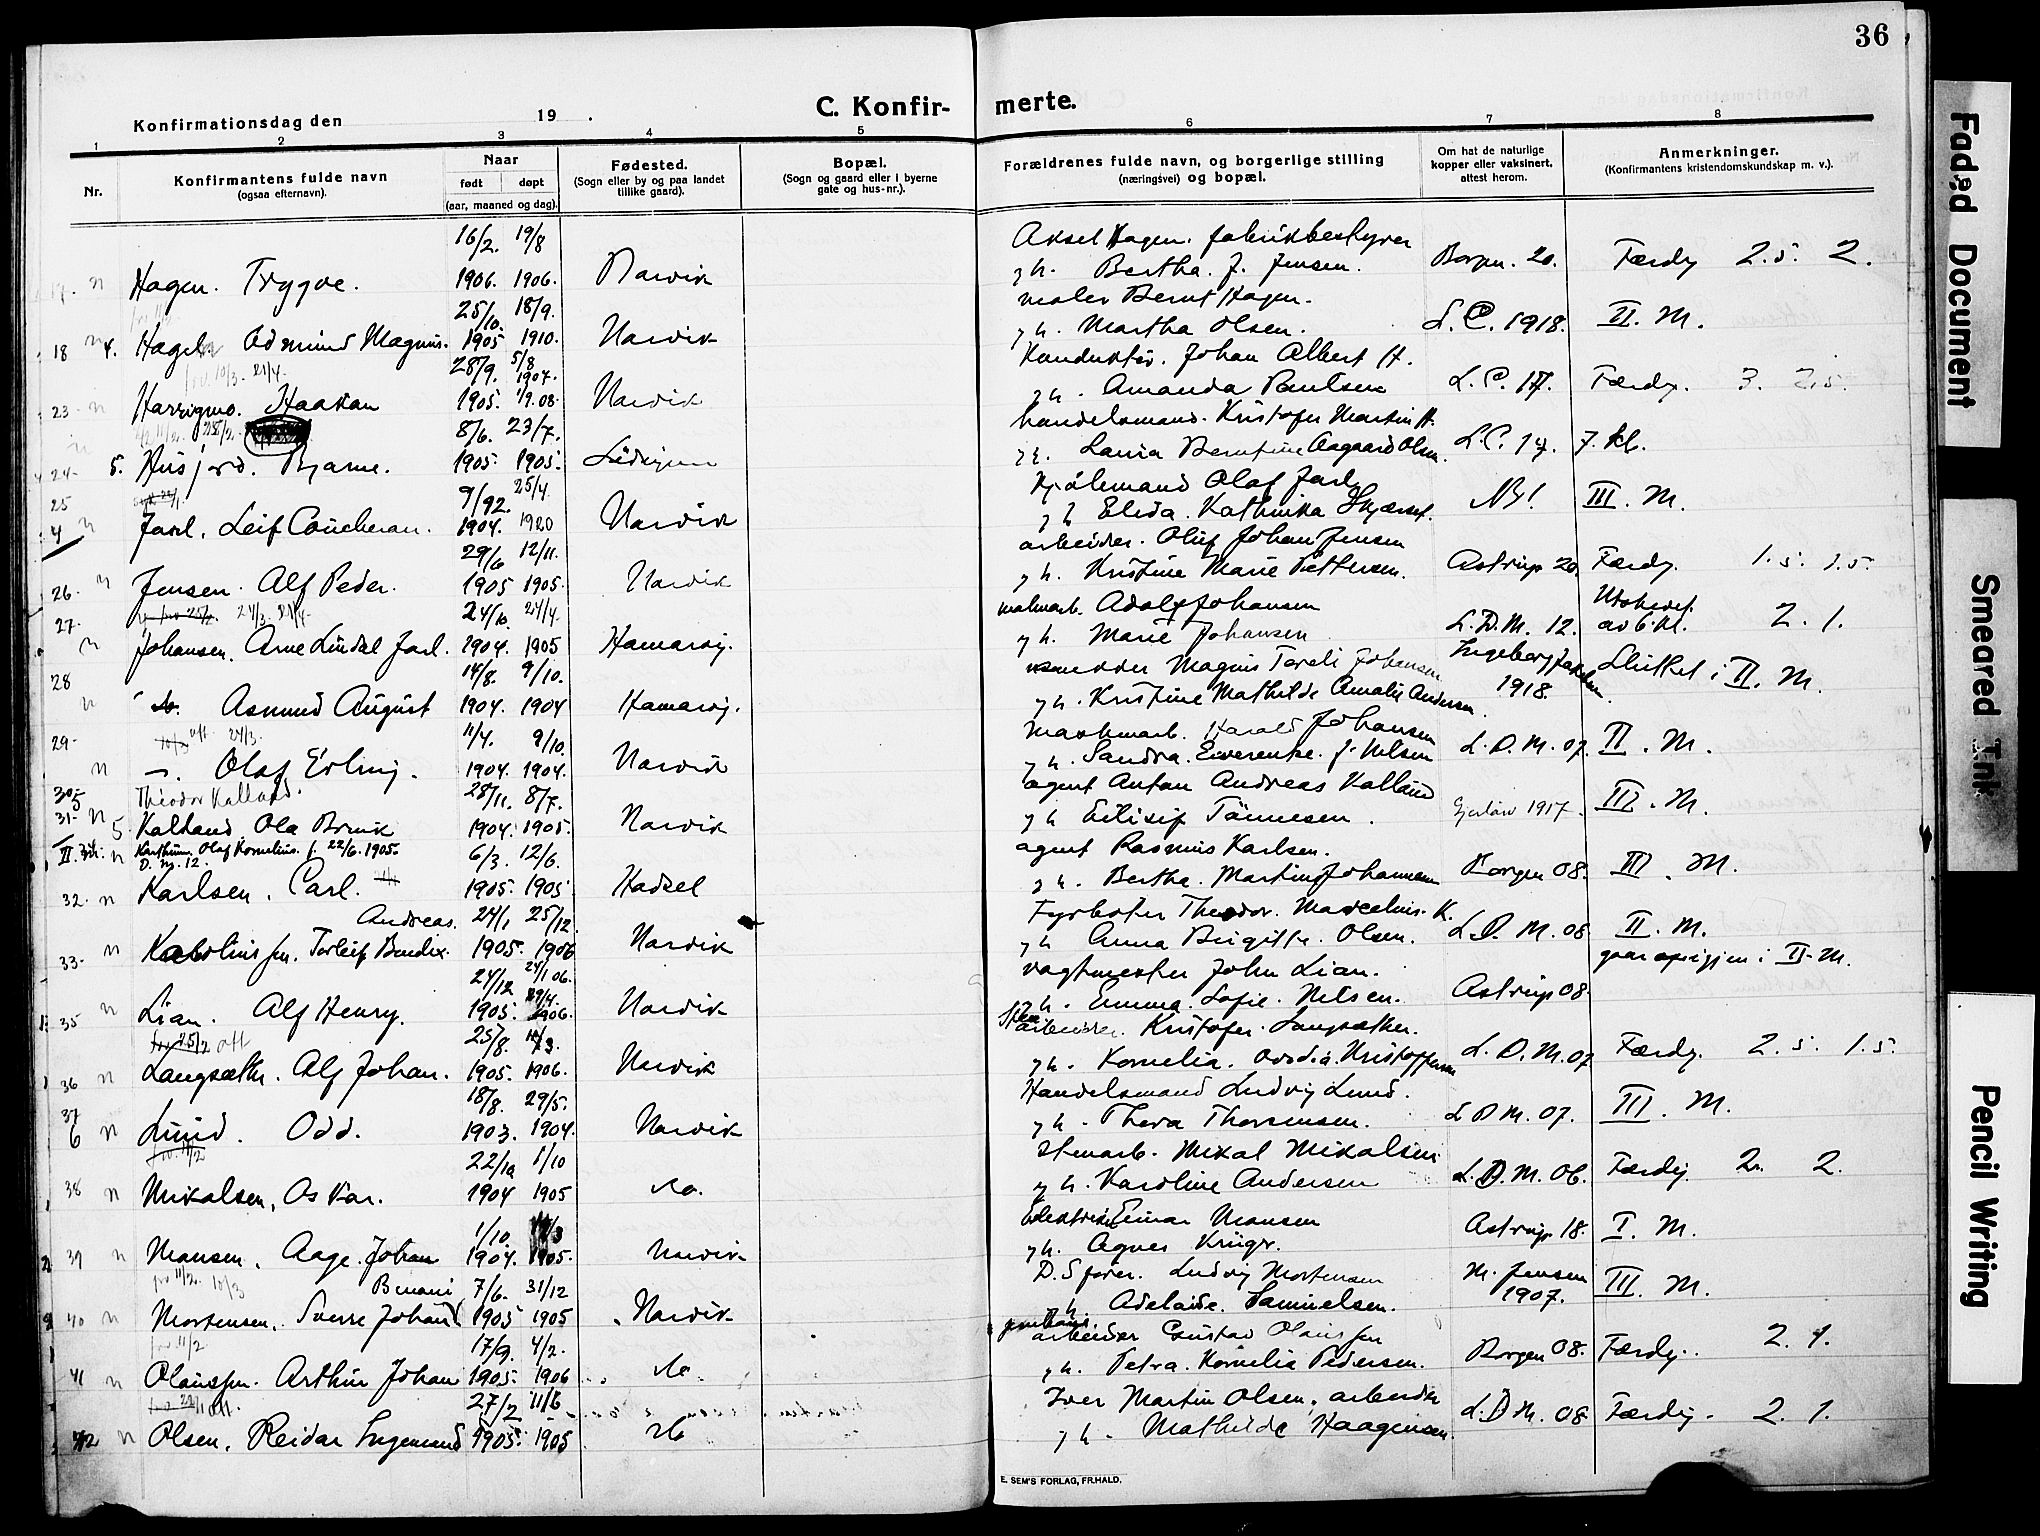 36
C. Konfir- merte.
Konfirmationsdag den 19 .
1 2 3 4 5 6 7 8
Nr.
Konfirmantens fulde navn
(ogsaa efternavn).
Naar
født døpt
(aar, maaned og dag).
Fødested.
(Sogn eller by og paa landet
tillike gaard).
Bopæl.
(Sogn og gaard eller i byerne
gate og hus-nr.).
Forældrenes fulde navn, og borgerlige stilling
(næringsvei) og bopæl.
Om hat de naturlige
kopper eller vaksinert,
attest herom.
Anmerkninger.
(Konfirmantens kristendomskundskap m. v.).
16/2. 19/8 Aksel Hagen. fabrikbestyrer
17. n Hagen. Trygve. 1906. 1906. Narvik g h. Bertha. J. Jensen. Borgen. 20. Færdig 2.5. 2.
25/10. 18/9. maler Bernt Hagen.
18 n 4. Hagen Admund Magnus. 1905 1910. Narvik g h. Martha Olsen. L. C. 1918. II. M.
10/3- 21/4- 28/9. 5/8 1907. Konduktør. Johan Albert H.
23- n Harrigmo. Haakan 1905. 1/9.08. Narvik g h. Amanda Paulsen L. C. 17. Færdig. 3. 2.5.
8/6. 23/7. handelsmand. Kristofer Martin H.
24- 5. Husjord. Bjarne. 1905. 1905. Lødingen g h. Laura Berntine Aagaard Olsen. L. C. 17. 7. kl.
25 9/92. 25/4. Olaf Jarl
4 n Jarl. Leif Coucheran. 1904. 1920 Narvik g h Elida. Kathinka N3! III. M.
29/6 12/11. arbeider. Oluf Johan Jensen
26- n Jensen. Alf Peder. 1905 1905. Narvik g h. Kristine Marie Pettersen. Astrup 20. Færdig. 1.5. 1.5.
27. 24/3. 21/4- 24/10. 24/4. malmarb. Adolf Johansen Utskrevet
n Johansen. Arne Lindal Jarl. 1904. 1905 Hamarøy. g h. Marie Johansen L.D.M. 12. av 6.kl. 2. 1.
28 14/8. 9/10. Magnus Toreli Johansen Ingeborg Sluttet i II. M.
n do. Asmund August 1904. 1904 Hamarøy. g h. Kristine Mathilde Amalie Andersen. 1918.
29- 10/3 aft. 24/3. 11/4. 9/10. maskinarb. Harald Johansen
n —. Olaf Erling. 1904. 1904. Narvik g h. Sandra. f. Nilsen L. D. M. 07. II. M.
30- Theodor Kalland. 28/11. 8/7. agent Anton Andreas Kalland
31- n 5 Kalland Ola Bruvik 1904. 1905. Narvik g h Eilisif Tønnesen. 1917. III. M.
II. n Karthum. Olaf Kornelius. f. 22/6. 1905. 6/3. 12/6. agent Rasmus Karlsen.
D. M. 12.
32- n Karlsen, Carl. 1905. 1905 Hadsel g h. Bertha. Martine Johannesen Borgen 08. III. M.
Andreas. 24/1 25/12. Fyrbøter Theodor. Marcelius. K.
33- n Karoliussen. Torleif Bendix. 1905. 1906 Narvik g h Anna Birgitte. Olsen. L. D. M. 08. II. M.
24/12 24/1 06. vagtmester John Lian. gaar opigjen i II. M.
35 n Lian. Alf Henry. 1905. 29/4. 1906. Narvik g h. Emma. Sofie. Nilsen. Astrup 08.
25/2 aft 25/8. 11/3. Stenarbeider. Kristofer. Langsæther.
36 n Langsæthr. Alf Johan. 1905. 1906. Narvik g h. Kornelia. Ovedia. Kristoffersen L. D. M. 07 Færdig. 2.5. 1.5.
37 18/8. 29/5. Handelsmand Ludvig Lund.
6 n Lund. Odd. 1903. 1904. Narvik g h. Thora Thorsensen. L D M. 07. III. M.
11/2 22/10 1/10 Stenarb. Mikal Mikalsen
38 n Mikalsen, Oskar. 1904 1905 do. g h. Karoline Andersen L. D. M. 06. Færdig. 2. 2.
1/10. 11/3 Elektriker Einar Monsen
39 n Monsen, Aage. Johan 1904. 1905. Narvik g h. Agnes Krüger. Astrup 18. I. M.
11/2. 10/3 Benoni 7/6. 31/12 D.S fører. Ludvig Mortensen M. Jensen
40 n Mortensen. Sverre Johan 1905 1905 Narvik g h. Adelaide. Samuelsen. 1907. III. M.
11/2 17/9. 4/2. arbeider Gustav Olaussen
41 n Olaussen. Arthur Johan 1905. 1906 do g h. Petra. Kornelia Pedersen. Borgen 08. Færdig. 2. 1.
27/2 11/6 Iver Martin Olsen, arbeider
42 n Olsen, Reidar Ingemund 1905. 1905 do g h. Mathilde Haagensen. L. D M. 08. Færdig. 2. 1.
E. SEM'S FORLAG, FR.HALD.
Faded Document
Smeared Ink
Pencil Writing